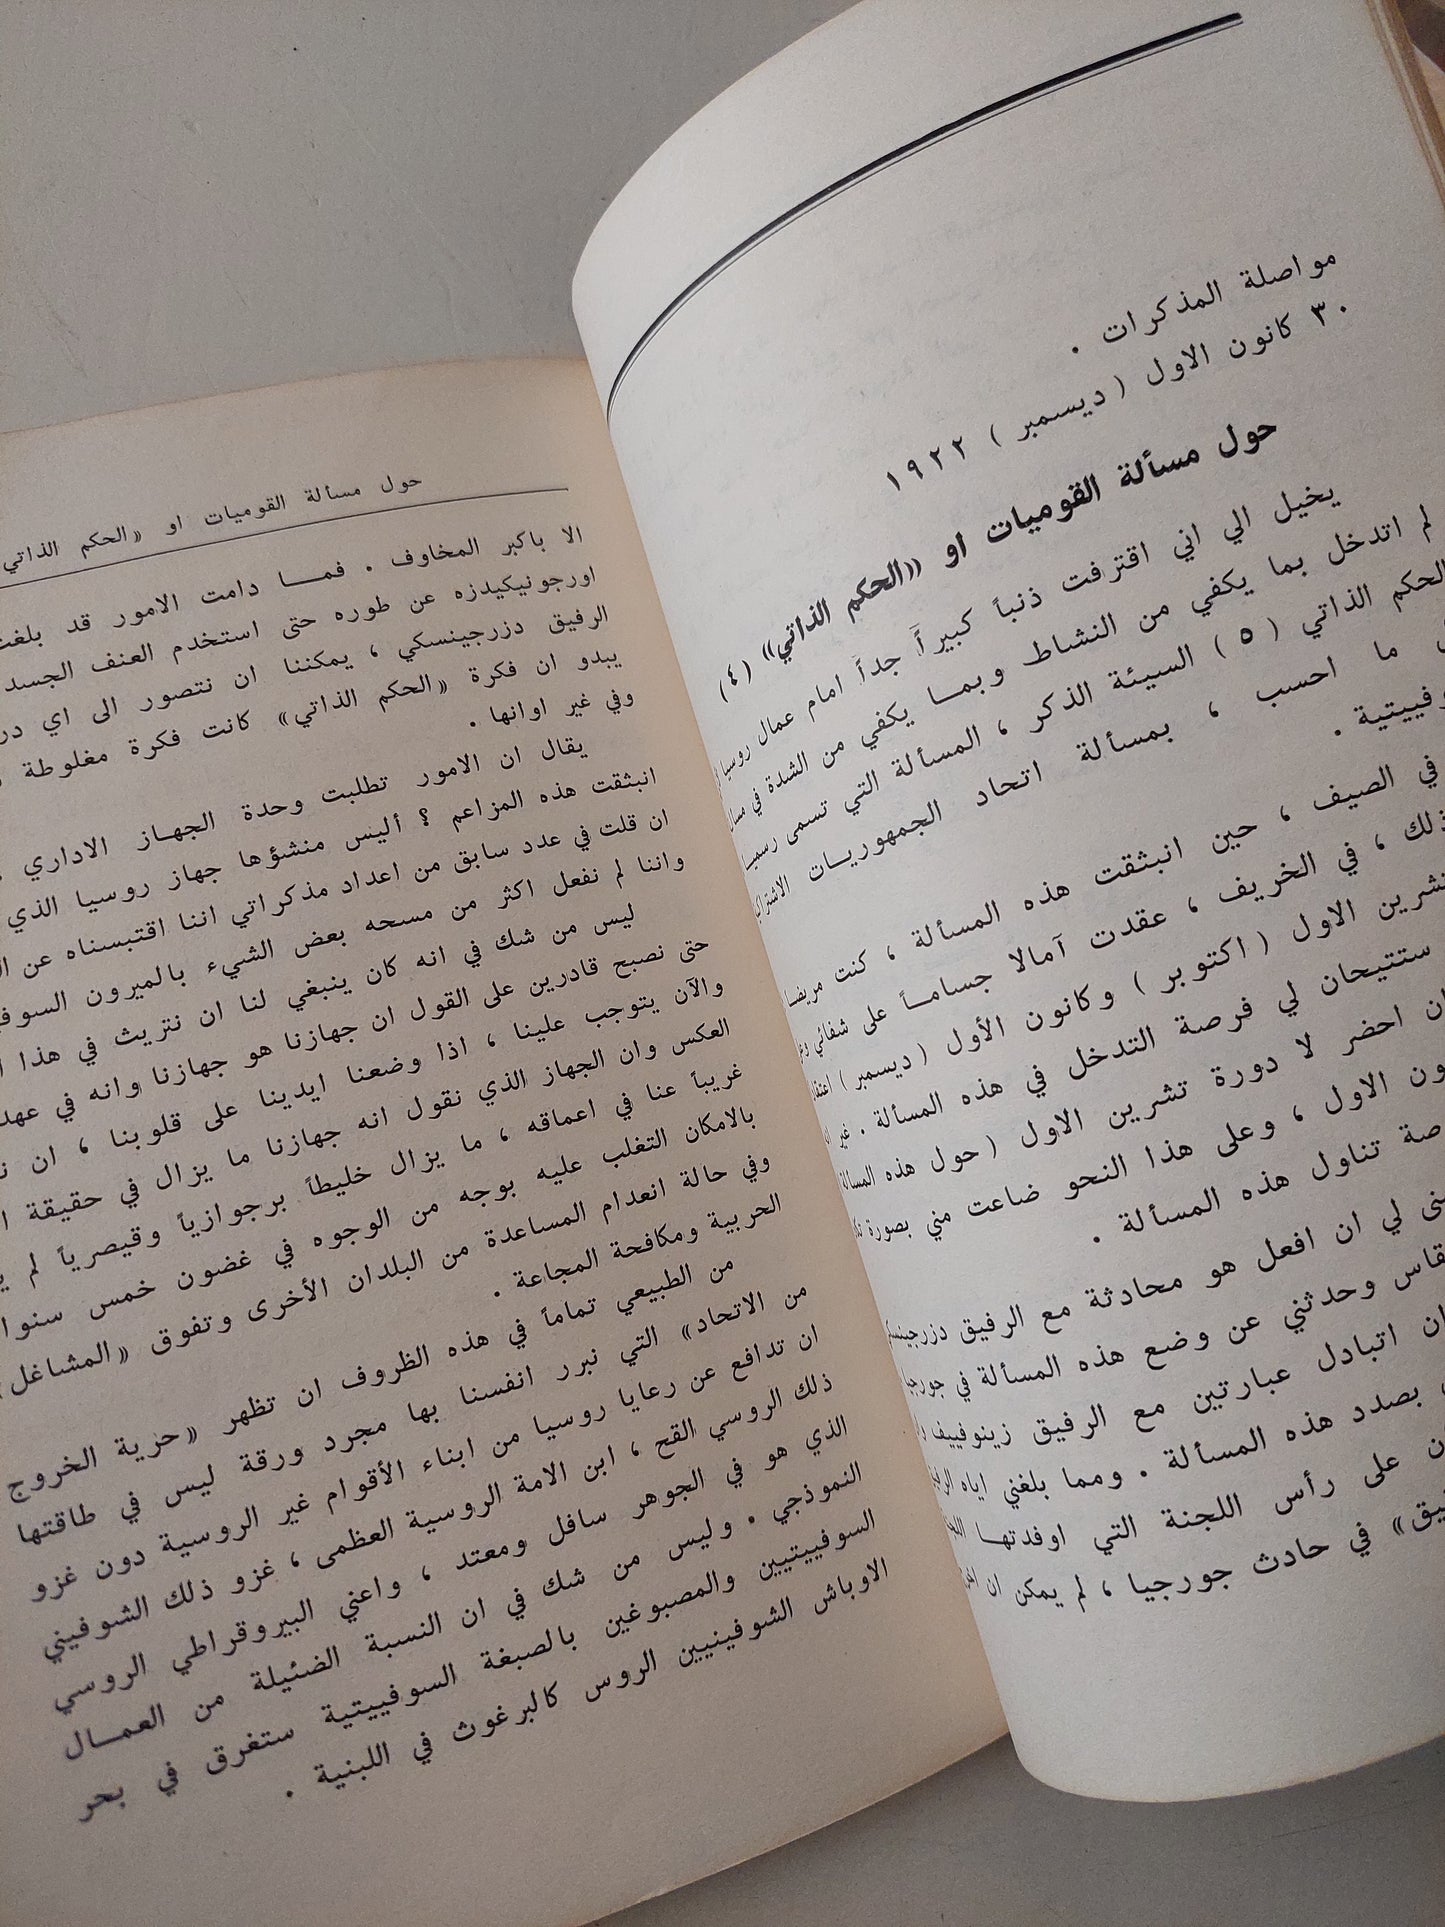 مواصلة المذكرات .
٣٠ كانون الاول ( ديسمبر ) ١٩٢٢
حول مسألة القوميات او «الحكم الذاتي» (٤)
يخيل الي اني اقترفت ذنباً كبيراً جداً امام عمال روسيا
لم اتدخل بما يكفي من النشاط وبمـا يكفي من الشدة في
الحكم الذاتي ( ٥ ) السيئة الذكر ، المسألة التي تسمى رسميـاً
ما احسب ، بمسألة اتحاد الجمهوريـات
في الصيف ، حين انبثقت هذه المسألة ، كنت مريضـاً
ذلك ، في الخريف ، عقدت آمالا جسامـاً على شفائي
تشرين الاول ( اكتوبر ) وكانون الأول ( ديسمبر )
ستتيحان لي فرصة التدخل في هذه المسألة . غير
احضر لا دورة تشرين الاول ( حول هذه المسألة
الاول ، وعلى هذا النحو ضاعت مني بصورة
تناول هذه المسألة .
لي ان افعل هو محادثة مع الرفيق دزرجينسكي
وحدثني عن وضع هذه المسألة في جورجيا
ان اتبادل عبارتين مع الرفيق زينوفييف
بصدد هذه المسألة . ومما بلغني اياه
على رأس اللجنة التي اوفدتهـا
في حادث جورجيا ، لم يمكن ان
حول مسألة القوميات او «الحكم الذاتي
الا باكبر المخاوف . فمـا دامت الامور قد بلغت
اورجونيكيدزه عن طوره حتى استخدم العنف
الرفيق دزرجينسكي ، يمكننا ان نتصور الى اي
يبدو ان فكرة «الحكم الذاتي» كانت فكرة مغلوطة
وفي غير اوانها .
يقال ان الامور تطلبت وحدة الجهـاز الاداري
انبثقت هذه المزاعم ؟ أليس منشؤها جهاز روسيا الذي
ان قلت في عدد سابق من اعداد مذكراتي اننا اقتبسناه عن
واننا لم نفعل اكثر من مسحه بعض الشيء بالميرون
ليس من شك في انه كان ينبغي لنا ان نتريث في هذا
حتى نصبح قادرين على القول ان جهازنا هو جهازنا وانه في
والآن يتوجب علينا ، اذا وضعنا ايدينا على قلوبنا ، ان
العكس وان الجهاز الذي نقول انه جهازنا ما يزال في حقيقة
غريباً عنا في اعماقه ، ما يزال خليطاً برجوازياً وقيصرياً لم
بالامكان التغلب عليه بوجه من الوجوه في غضون خمس
وفي حالة انعدام المساعدة من البلدان الأخرى وتفوق «المشاغل»
الحربية ومكافحة المجاعة .
من الطبيعي تماماً في هذه الظروف ان تظهر «حرية الخروج
من الاتحاد» التي نبرر انفسنا بها مجرد ورقة ليس في طاقتها
ان تدافع عن رعايا روسيا من ابناء الأقوام غير الروسية دون غزو
ذلك الروسي القح ، ابن الامة الروسية العظمى ، غزو ذلك الشوفيني
الذي هو في الجوهر سافل ومعتد ، واعني البيروقراطي الروسي
النموذجي . وليس من شك في ان النسبة الضئيلة من العمـال
السوفييتيين والمصبوغين بالصبغة السوفييتية ستغرق في بحر
الاوباش الشوفينيين الروس كالبرغوث في اللبنية .